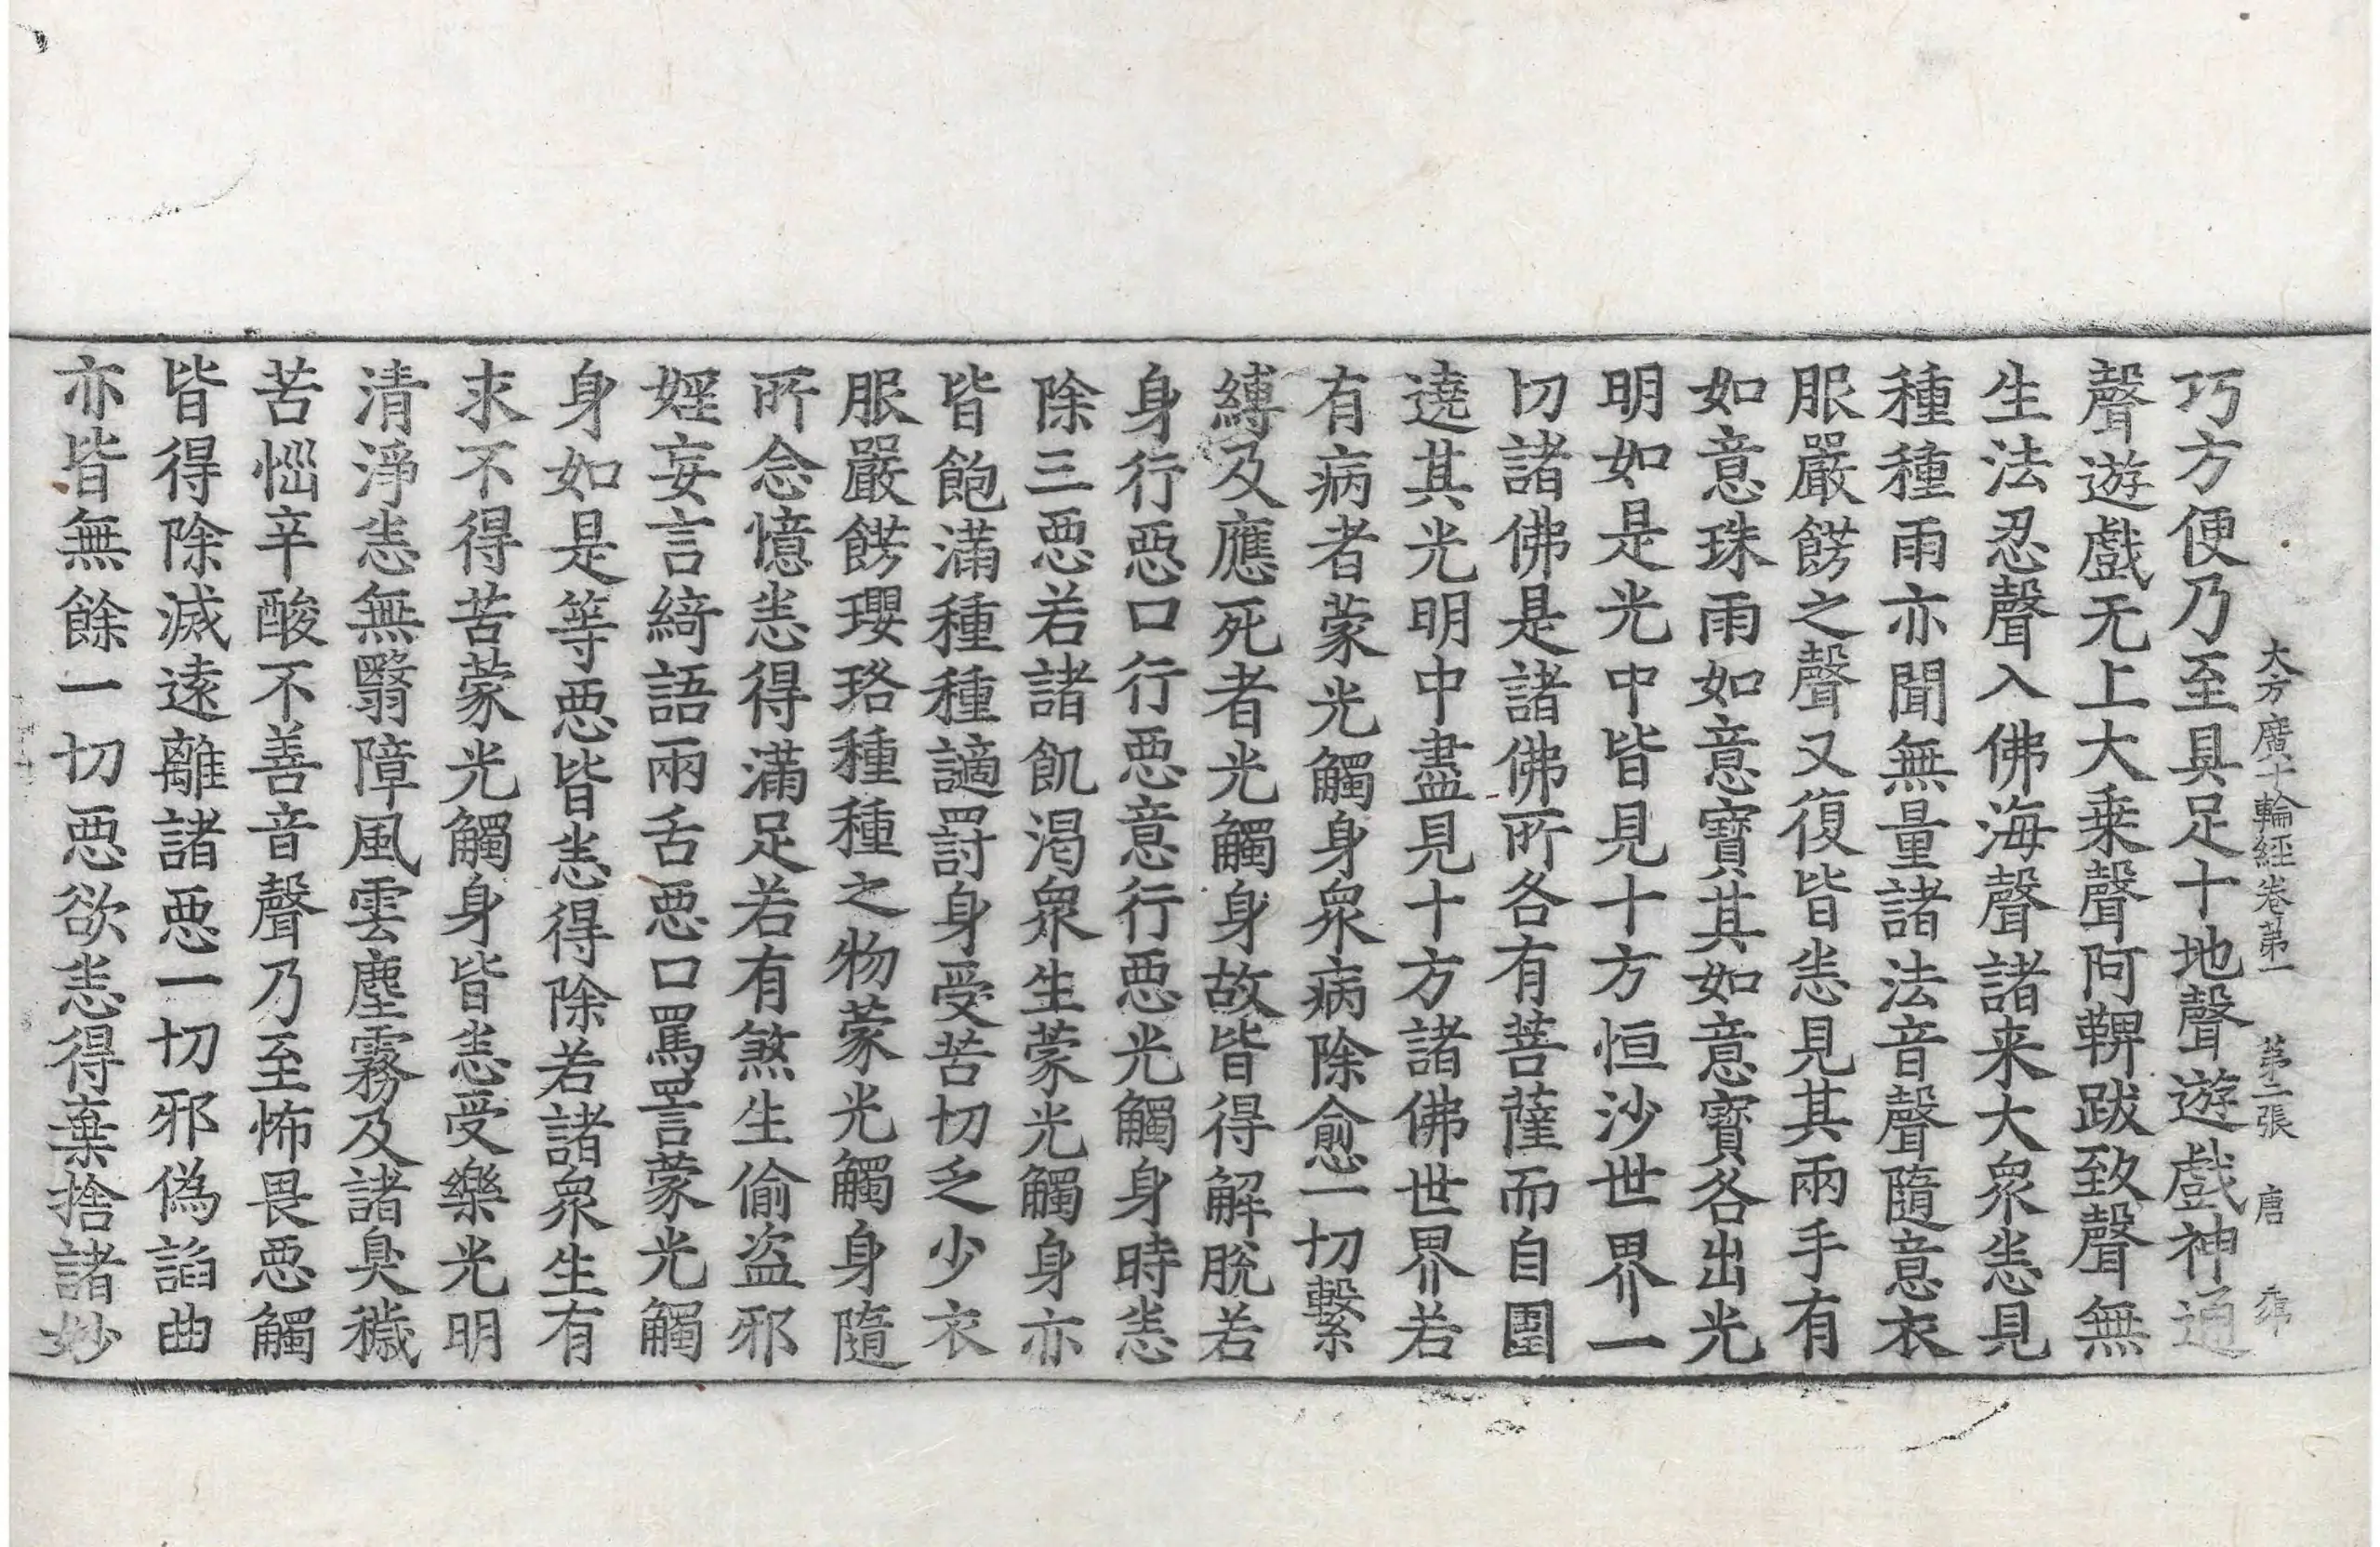 大方廣十輪經卷第一 第二張 唐
巧方便乃至具足十地聲遊戲神通
聲遊戲无上大乗聲阿鞞跋致聲無
生法忍聲入佛海聲諸来大衆悉見
種種雨亦聞無量諸法音聲隨意衣
服嚴餝之聲又復皆悉見其兩手有
如意珠雨如意寶其如意寶各出光
明如是光中皆見十方恒沙世界一
切諸佛是諸佛所各有菩薩而自圍
遶其光明中盡見十方諸佛世界若
有病者蒙光觸身衆病除愈一切繫
縛及應死者光觸身故皆得解脫若
身行惡口行惡意行惡光觸身時悉
除三惡若諸飢渴衆生蒙光觸身亦
皆飽滿種種讁罰身受苦切乏少衣
服嚴餝瓔珞種種之物蒙光觸身隨
所念憶悉得滿足若有煞生偷盜邪
婬妄言綺語兩舌惡口罵詈蒙光觸
身如是等惡皆悉得除若諸衆生有
求不得苦蒙光觸身皆悉受樂光明
清淨悉無翳障風雲塵霧及諸臭穢
苦惱辛酸不善音聲乃至怖畏惡觸
皆得除滅遠離諸惡一切邪偽諂曲
亦皆無餘一切惡欲悉得棄捨諸妙